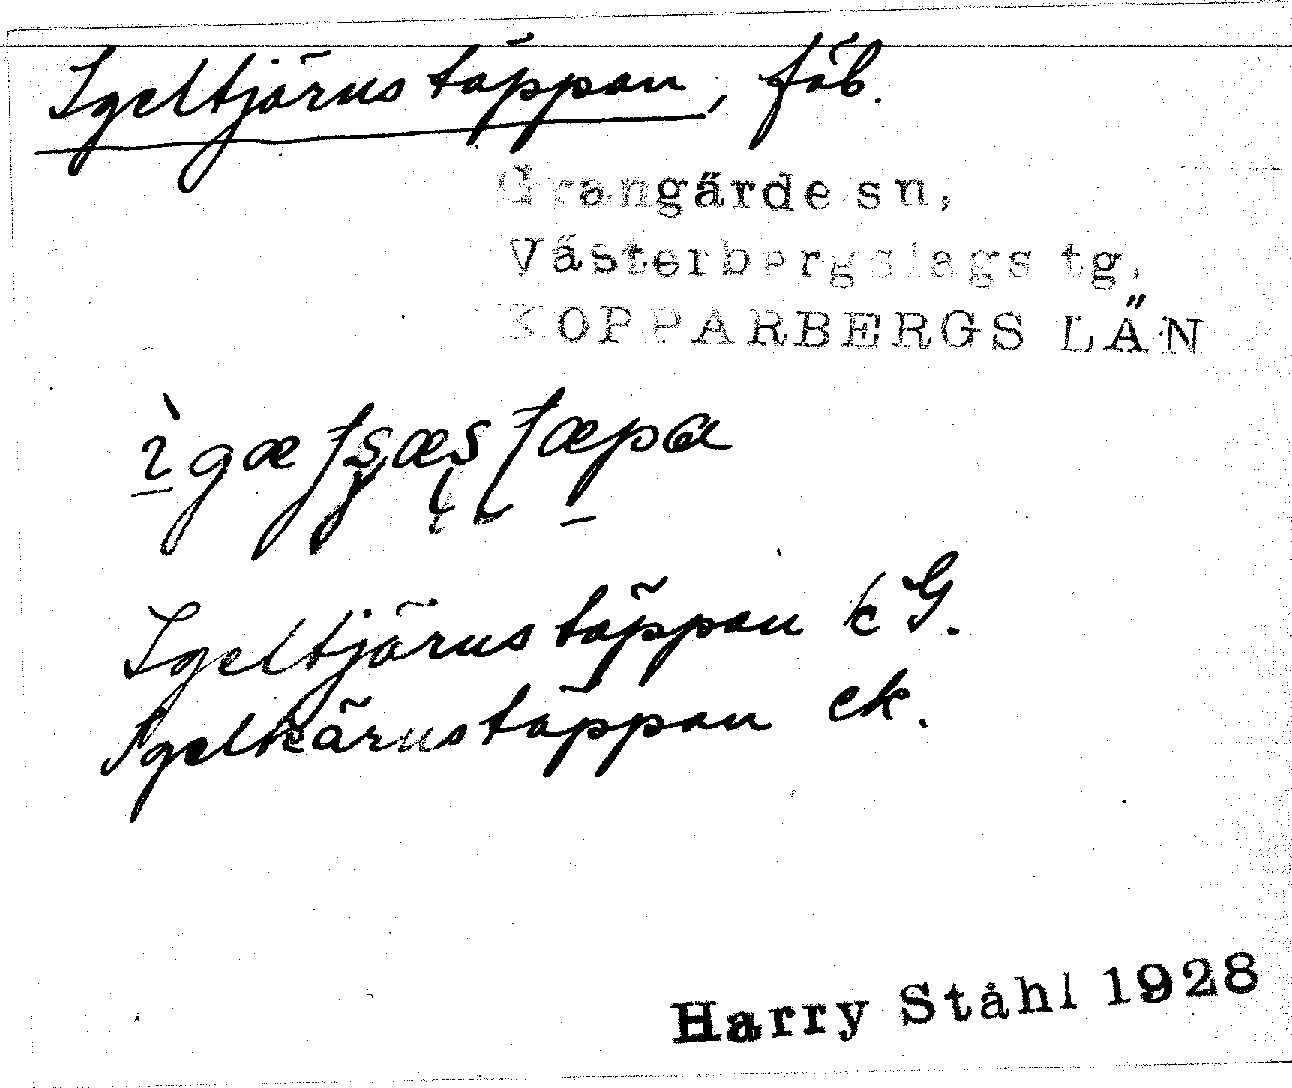 Igeltjärnstäppan, fäb.
Grangärde sn,
Västerbergslags tg.
KOPPARBERGS LÄN
Igeltjärnstäppan kG.
Igelkärnstäppan ek.
Harry Ståhl 1928